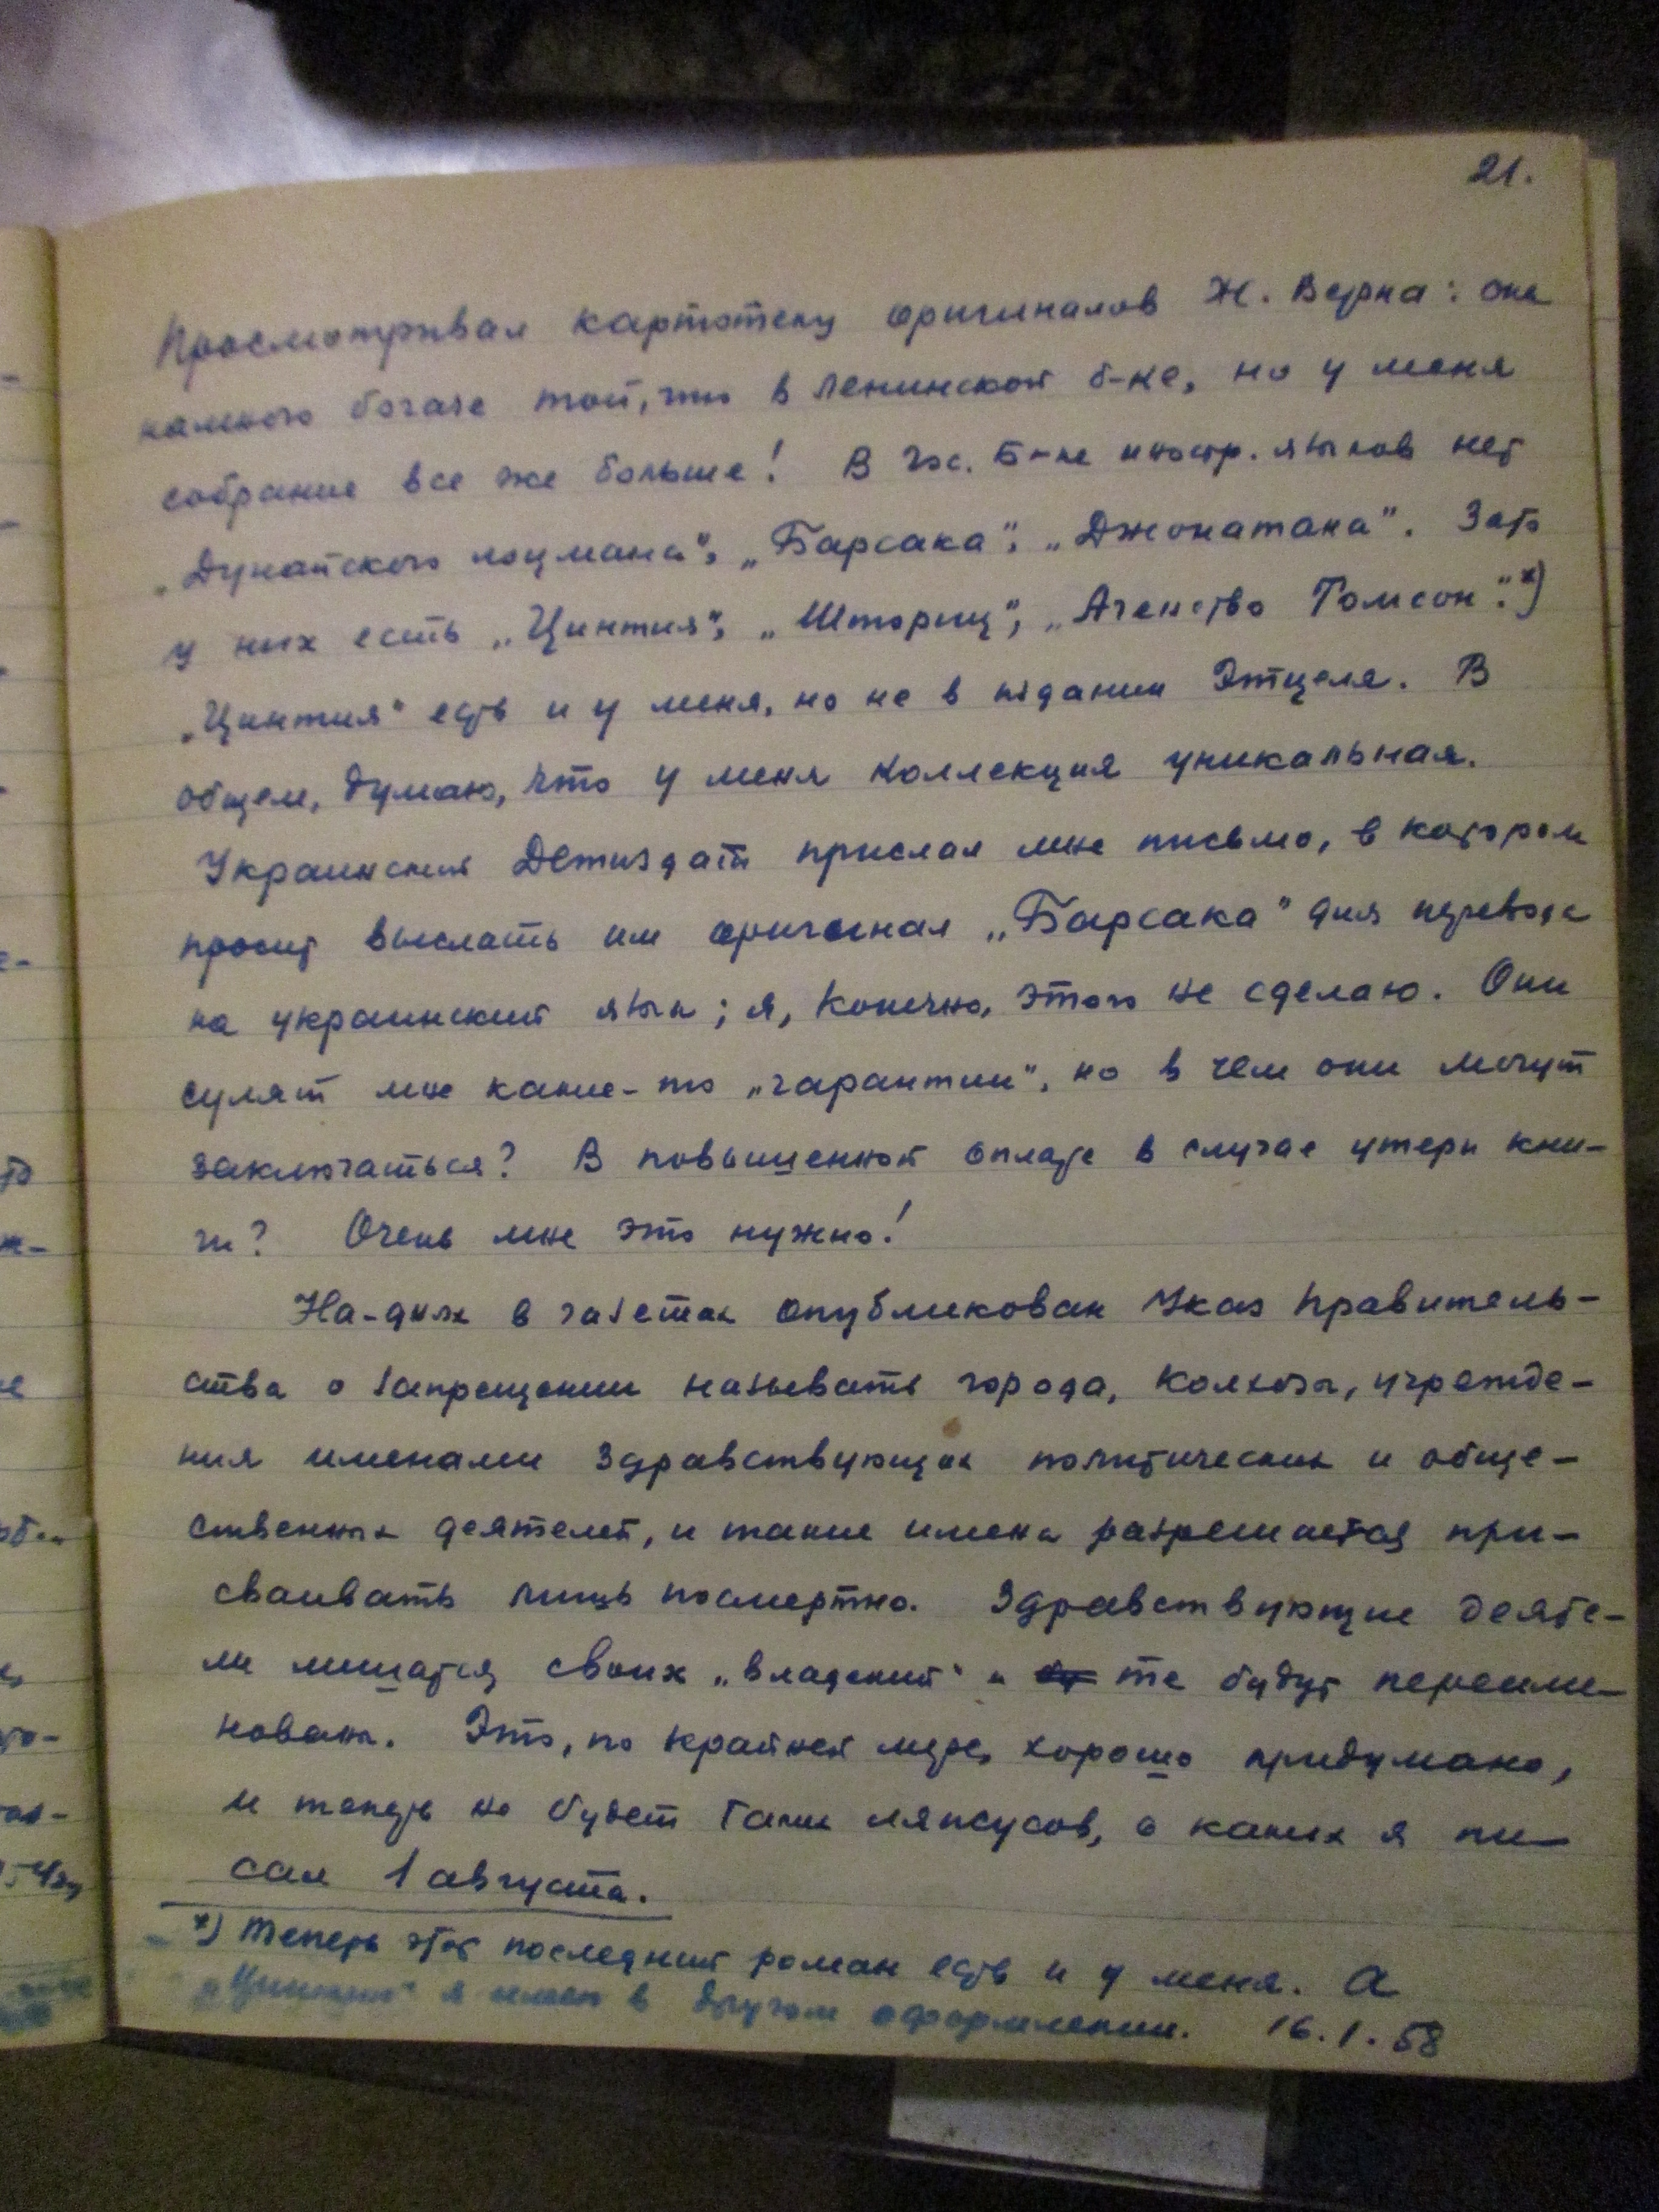 21.
Просматривал картотеку оригиналов Ж. Верна: она
намного богаче той, что в Ленинской б-ке, но у меня
собрание все же больше! В Гос. Б-ке иностр. языков нет
„Дунайского лоцмана“, „Барсака“, „Джонатана“. Зато
у них есть „Цинтия“, „Шториц“, „Агенство Томсон“.*)
„Цинтия“ есть и у меня, но не в издании Этцеля. В
общем, думаю, что у меня коллекция уникальная.
Украинский Детиздат прислал мне письмо, в котором
просит выслать им оригинал „Барсака“ для перевода
на украинский язык; я, конечно, этого не сделаю. Они
сулят мне какие-то „гарантии“, но в чем они могут
заключаться? В повышенной оплате в случае утери кни-
ги? Очень мне это нужно!
На-днях в газетах опубликован Указ Правитель-
ства о запрещении называть города, колхозы, учрежде-
ния именами здравствующих политических и обще-
ственных деятелей, и такие имена разрешается при-
сваивать лишь посмертно. Здравствующие деяте-
ли лишатся своих „владений“ и те будут переиме-
нованы. Это, по крайней мере, хорошо придумано,
и теперь не будет таких ляпсусов, о каких я пи-
сал 1 августа.
*) Теперь этот последний роман есть и у меня. А
„Цинтию“ я имею в другом оформлении. 16.1.58